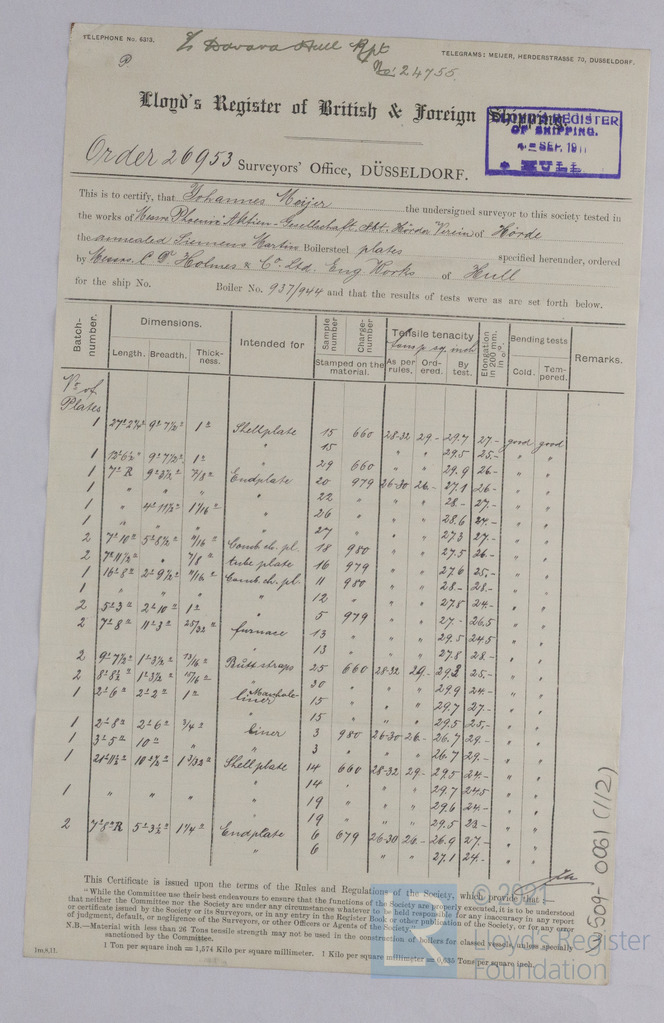 TELEPHONE No. 6313.
TELEGRAMS: MEIJER, HERDERSTRASSE 70, DUSSELDORF.
Hull Rpt
No. 24755
Lloyd's Register of British & Foreign Shipping.
LLOYD'S REGISTER
OF SHIPPING.
SEP. 1911
HULL
Order 26953 Surveyors' Office, DÜSSELDORF.
This is to certify, that Johannes Meijer the undersigned surveyor to this society tested in
the works of Messrs Phoenix Aktien-Gesellschaft Abt: Hörder Verein of Hörde
the annealed Siemens Martin Boilersteel plates specified hereunder, ordered
by Messrs. C. D. Holmes & Co. Ltd. Eng Works of Hull
for the ship No. Boiler No. 937/944 and that the results of tests were as are set forth below.
Batch-number. Dimensions. Length. Breadth. Thick-ness. Intended for Sample number Charge-number Stamped on the material. Tensile tenacity tons p. sq. inch As per rules, Ord-ered. By test. Elongation in 200 mm. in %. Bending tests Cold. Tem-pered. Remarks.
No of
Plates
1 9" 7½" 1" Shellplate 15 660 28-32 29- 29.7 27- good good
" 15 " " 29.5 25- " "
1 9" 7½" 1" " 29 660 " " 29.9 26- " "
1 7" R 7/8" Endplate 20 979 26-30 26- 27.1 26- " "
1 " " " " 22 " " " 28- 27- " "
1 " 4" 11½" 1 1/16" " 26 " " " 28.6 24- " "
1 " " " " 27 " " " 27.3 27- " "
2 7" 10" 5" 8½" 11/16" Comb. ch. pl. 18 980 " " 27.5 26- " "
2 7" 11½" " 7/8" tube plate 16 979 " " 27.6 25- " "
1 16" 8" 2" 9½" 11/16" Comb. ch. pl. 11 980 " " 28- 28- " "
1 " " " " 12 " " " 27.8 24- " "
2 5" 3" 2" 10" 1" " 5 979 " " 27- 26.5 " "
2 7" 8" 11" 3" 25/32" furnace 13 " " " 29.5 24.5 " "
" 13 " " " 27.8 28- " "
2 9" 7½" 1" 3½" 13/16" Buttstraps 25 660 28-32 29- 29.2 25- " "
2 8" 8½" 1" 3½" " 30 " " " 29.9 24- " "
1 2" 6" 2" 2" 1" Manhole-liner 15 " " " 29.7 27- " "
" 15 " " " 29.5 25- " "
1 2" 8" 2" 6" 3/4" Liner 3 980 26-30 26- 26.7 29- " "
1 3" 5" 10" " " 3 " " " 26.7 29- " "
1 21" 11½" 1 3/32" Shellplate 14 660 28-32 29- 29.5 24- " "
" 14 " " " 29.7 24.5 " "
1 " " " " 19 " " " 29.6 24- " "
" 19 " " " 29.5 23- " "
2 7" 8" R 5" 3½" 1 1/4" Endplate 6 679 26-30 26- 26.9 27- " "
" 6 " " 27.1 24- " "
This Certificate is issued upon the terms of the Rules and Regulations of the Society, which provide that:—
"While the Committee use their best endeavours to ensure that the functions of the Society are properly executed, it is to be understood
that neither the Committee nor the Society are under any circumstances whatever to be held responsible for any inaccuracy in any report
or certificate issued by the Society or its Surveyors, or in any entry in the Register Book or other publication of the Society, or for any error
of judgment, default, or negligence of the Surveyors, or other Officers or Agents of the Society."
N.B.—Material with less than 26 Tons tensile strength may not be used in the construction of boilers for classed vessels unless specially
sanctioned by the Committee.
1m,8,11. 1 Ton per square inch = 1,574 Kilo per square millimeter. 1 Kilo per square millimeter = 0,635 Tons per square inch.
509-0061 (1/2)
© 2021
Lloyd's Register
Foundation